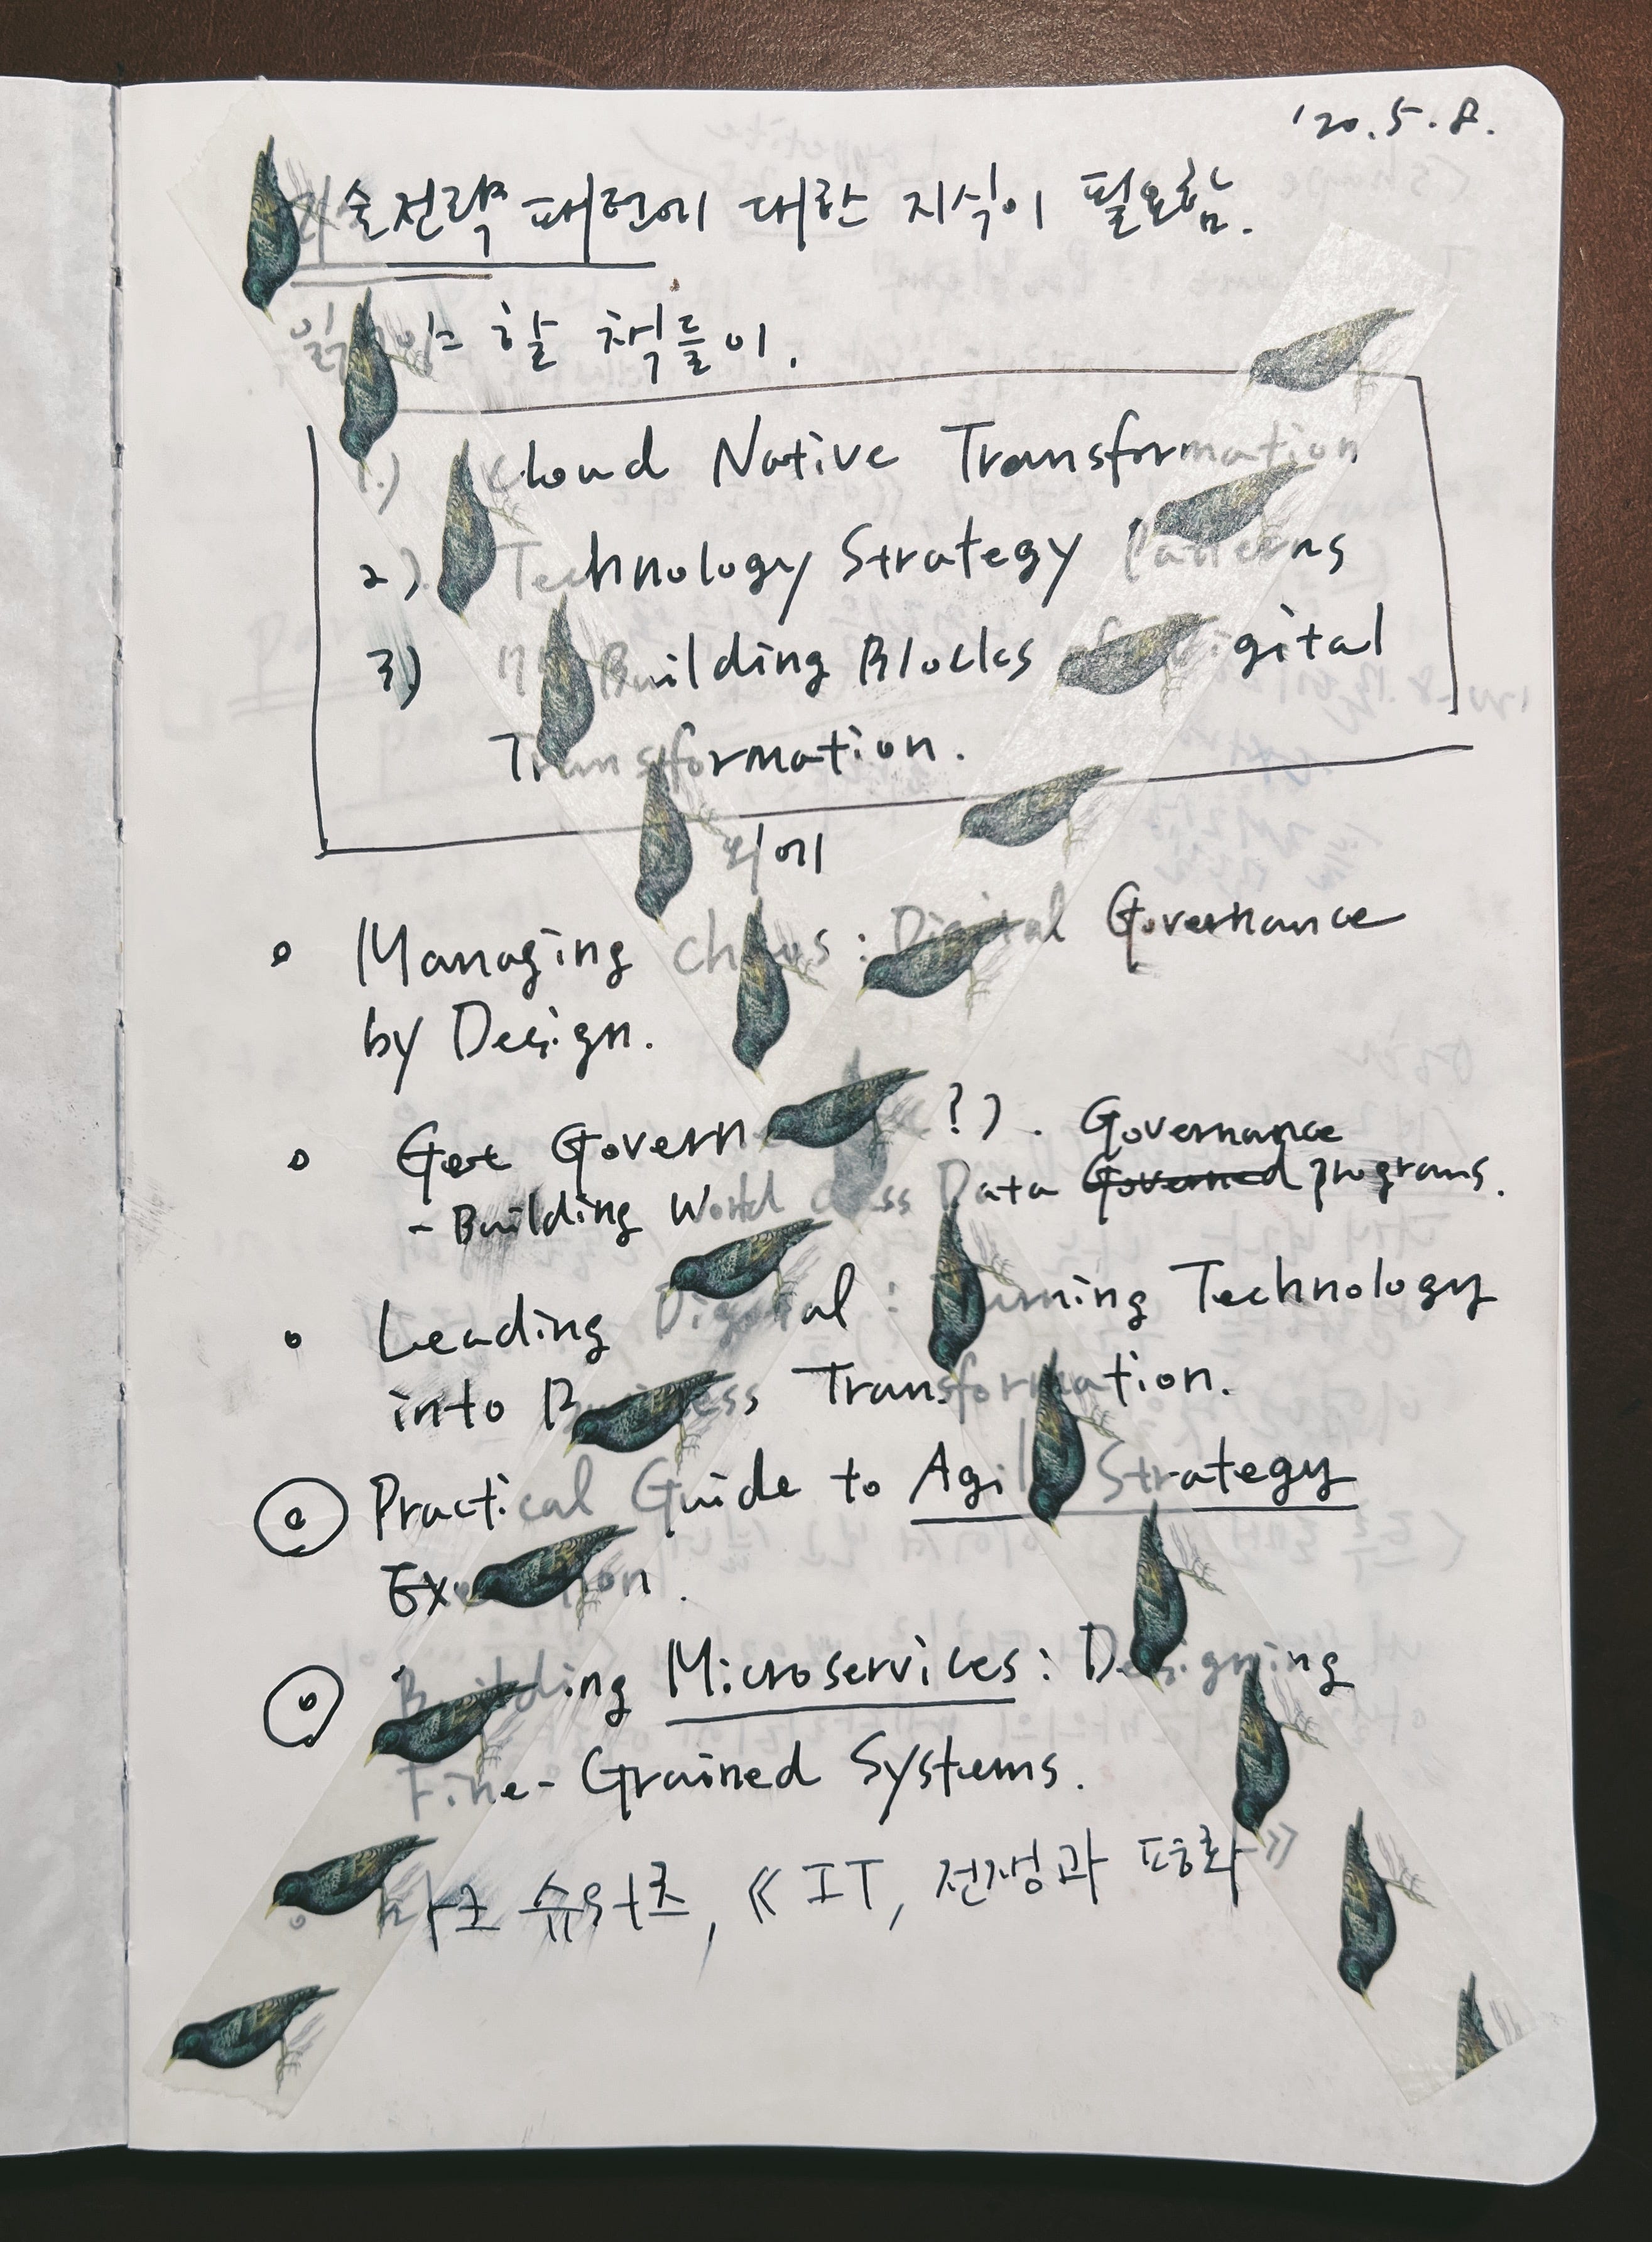 '20.5.8.
기술전략 패턴에 대한 지식이 필요함.
할 책들이.
1.) Cloud Native Transformation
2.) Technology Strategy Patterns
3) Building Blocks Digital
Transformation.
외에
Managing Chaos: Digital Governance
by Design.
Get Govern ?). Governance
- Building World Class Data Governed programs.
Leading Digital: Turning Technology
into Business Transformation.
Practical Guide to Agile Strategy
Execution.
Building Microservices: Designing
Fine-Grained Systems.
마크 슈워츠, 《IT, 전쟁과 평화》